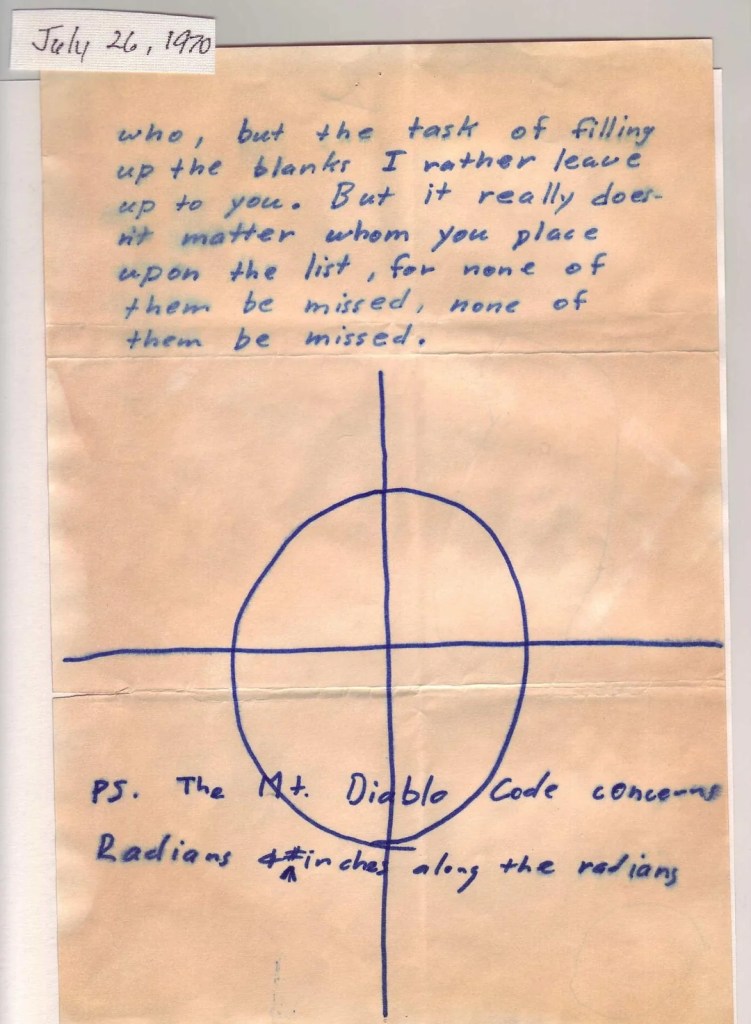 July 26, 1970
who, but the task of filling
up the blanks I rather leave
up to you. But it really does-
n't matter whom you place
upon the list, for none of
them be missed, none of
them be missed.
PS. The Mt. Diablo Code concerns
Radians & # inches along the radians